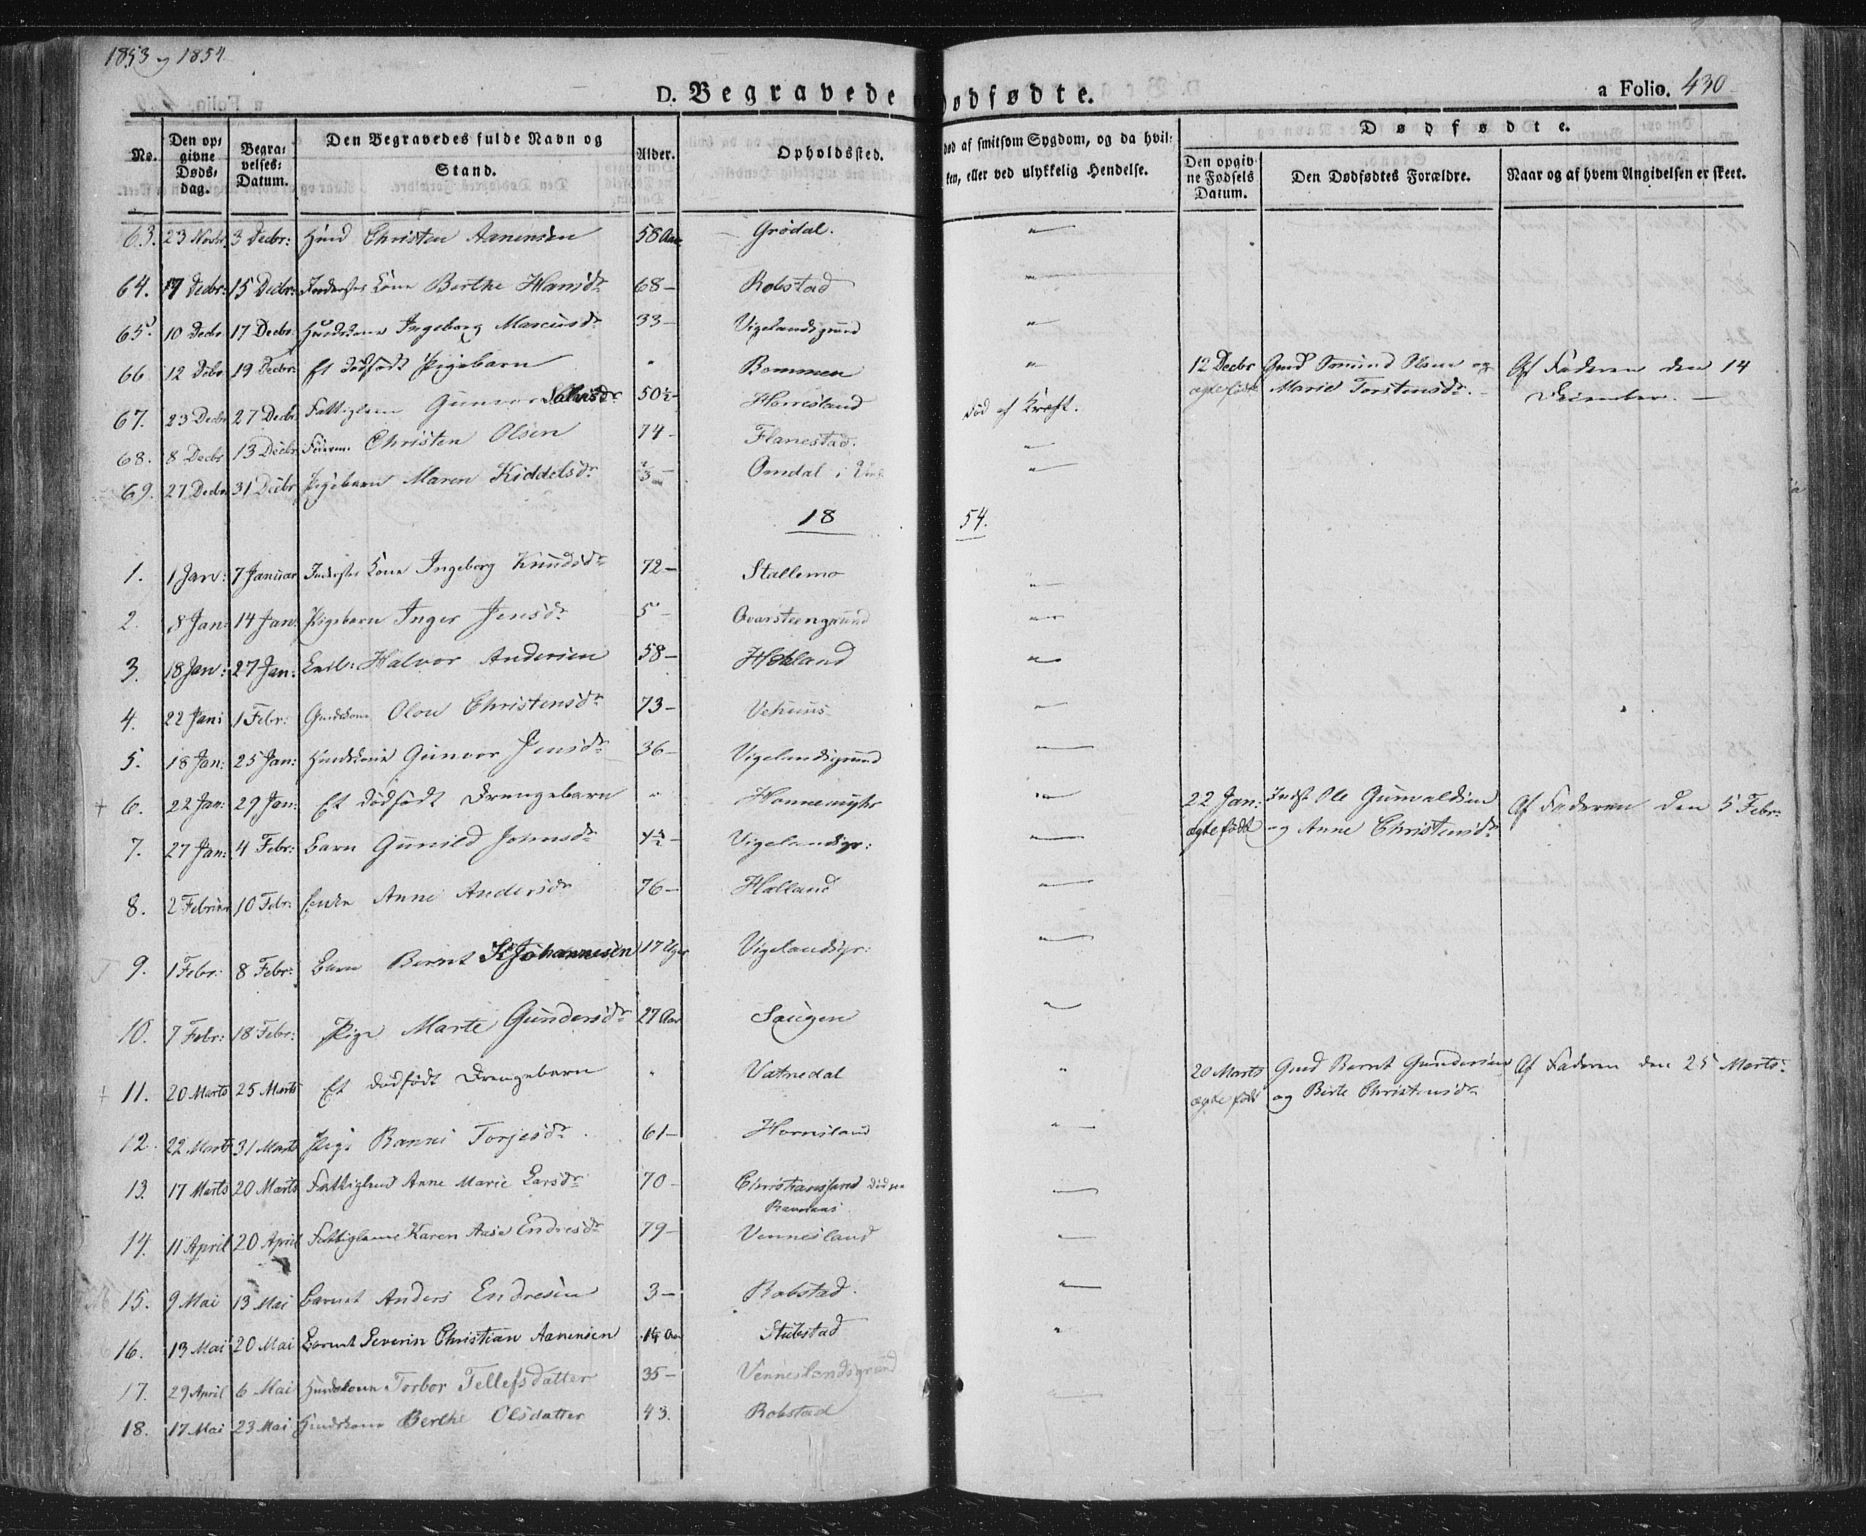 1853 og 1854
D. Begravede dødfødte.
a Folio. 430
No.
Den opgivne Døds-dag.
Begravelses-Datum.
Den Begravedes fulde Navn og Stand.
Alder.
Opholdssted.
Død af smitsom Sygdom, og da hvilken, eller ved ulykkelig Hendelse.
Dødfødte.
Den opgivne Fødsels Datum.
Den Dødfødtes Forældre.
Naar og af hvem Angivelsen er skeet.
63. 23 Novbr 3 Decbr: Christen Aanensen 58 Aar Grødal. "
64. Decbr: 15 Decbr: Kone Berthe Hansdr 68 — Robstad "
65. 10 Decbr 17 Decbr Ingeborg Marcusdr 33 — Vigelandsgrund "
66 12 Decbr 19 Decbr: Et dødfødt Pigebarn " Bommen " 12 Decbr Olsen og Af Faderen den 14
ægte født Marie Torstensdr. December. —
67. 23 Decbr 27 Decbr Gunvor Salvesdr 50½ — Homesland Død af Kræft.
68. 8 Decbr 13 Decbr Christen Olsen 74 — Flanestad. "
69. 27 Decbr 31 Decbr Pigebarn Maren Kiddelsdr Omdal i "
18 54.
1. 1 Jan: 7 Januar Kone Ingeborg Knudsdr 72 — Stallemo "
2. 8 Jan: 14 Jan Pigebarn Inger Jensdr 5 — Ovarsteengrund "
3. 18 Jan: 27 Jan: Halvor Andersen 58 — "
4. 22 Jan: 1 Febr: Olou Christensdr 73 — Vehuus "
5. 18 Jan: 25 Jan: Gunvor Jensdr 36 — Vigelandsgrund "
6. 22 Jan: 29 Jan: Et dødfødt Drengebarn " Honnemyhr " 22 Jan: Ole Gunvaldsen Af Faderen den 5 Febr:
ægte født og Anne Christensdr
7. 27 Jan: 4 Febr: Barn Gunild Johnsdr Vigelandsgr: "
8. 2 Februar 10 Febr: Enke Anne Andersdr 76 — Holland "
9. 1 Febr: 8 Febr: Barn Bernt Johannesen 17 Uger Vigelandsgr: "
10. 7 Febr: 18 Febr: Pige Marte Gundersdr 27 Aar Saugen "
11. 20 Marts 25 Marts Et dødfødt Drengebarn " Vatnedal " 20 Marts Gmd Bernt Gundersen Af Faderen den 25 Marts
ægte født og Birte Christensdr
12. 22 Marts 31 Marts Pige Torjesdr 61 — "
13. 17 Marts 20 Marts Anne Marie Larsdr 70 — Christianssand "
14. 11 April 20 April Karen Aase Endresdr 79 — Vennesland "
15. 9 Mai 13 Mai Barnet Anders Endresen 3 — Robstad. "
16. 13 Mai 20 Mai Barnet Severin Christian Aanensen Stubstad "
17. 29 April 6 Mai Torbor Tellefsdatter 35 — Venneslandsgrund "
18. 17 Mai 23 Mai Berthe Olsdatter 43. Robstad